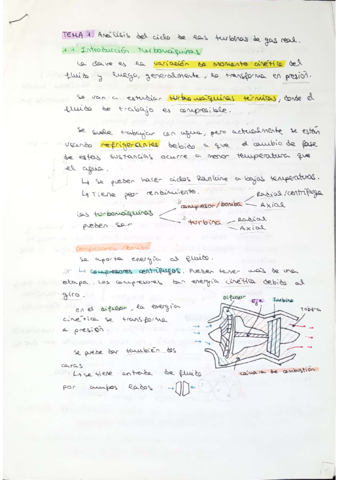 TEMA 1. Análisis del ciclo de las turbinas de gas real.
1.1. Introducción Turbomáquinas
La clave es la variación de momento cinético del
fluido y luego, generalmente, lo transforma en presión.
Se van a estudiar turbomáquinas térmicas, donde el
fluido de trabajo es compresible.
Se suele trabajar con agua, pero actualmente se están
usando refrigerantes debido a que el cambio de fase
de estas sustancias ocurre a menor temperatura que
el agua.
↳ Se pueden hacer ciclos Rankine a bajas temperaturas.
↳ Tiene peor rendimiento.
Las turbomáquinas
pueden ser
compresor/bomba
Radial/centrífuga
Axial
turbina
Radial
Axial
Compresores/bombas
Se aporta energía al fluido.
↳ Compresores centrífugos. Pueden tener más de una
etapa. Los compresores dan energía cinética debido al
giro.
En el difusor, la energía
cinética se transforma
a presión.
Difusor
eje
Turbina
Tobera
cámara de combustión
Se puede dar también dos
caras
↳ se tiene entrada de fluido
por ambos lados